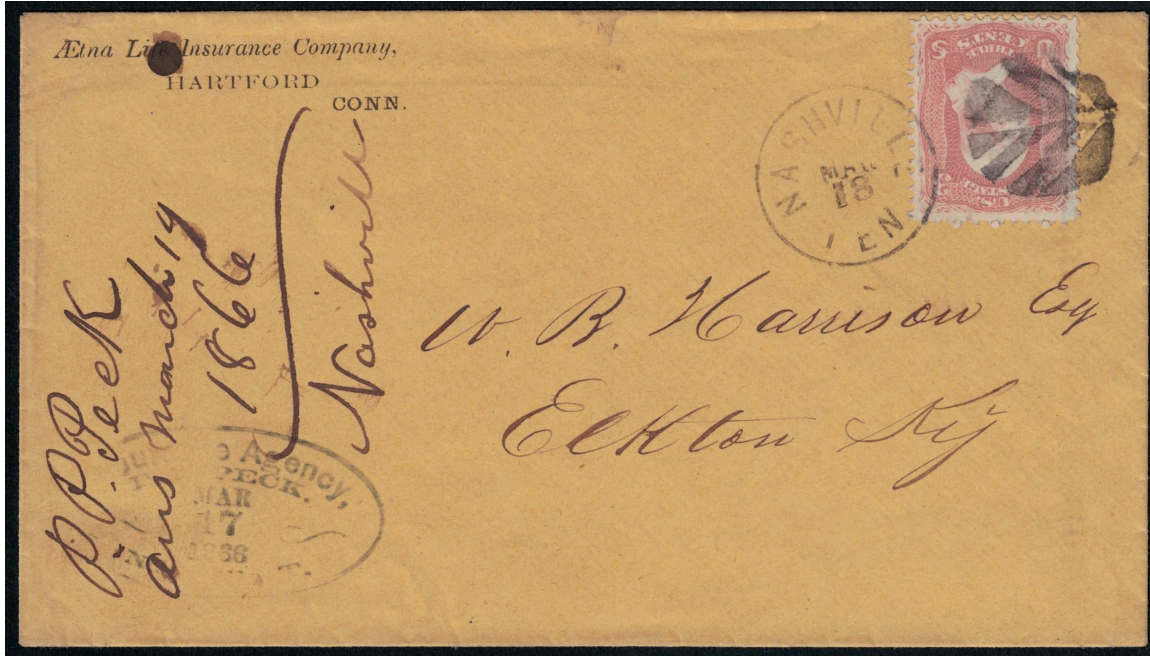 Ætna Life Insurance Company,
HARTFORD
CONN.
NASHVILLE
MAR
18
TEN.
THREE
CENTS
U.S.
POSTAGE
W. B. Harrison Esq
Elkton Ky
P. P. Peck
ans March 19
1866
Nashvill
Agency,
PECK.
MAR
17
1866